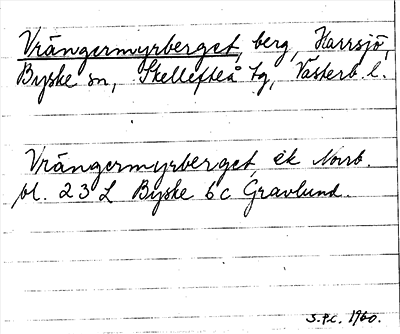 Vrångermyrberget, berg, Harrsjö,
Byske sn, Skellefteå tg, Västerb. l.
Vrångermyrberget, ek Norrb.
bl. 23 L Byske 6 c Gravlund.
S.P.C. 1960.